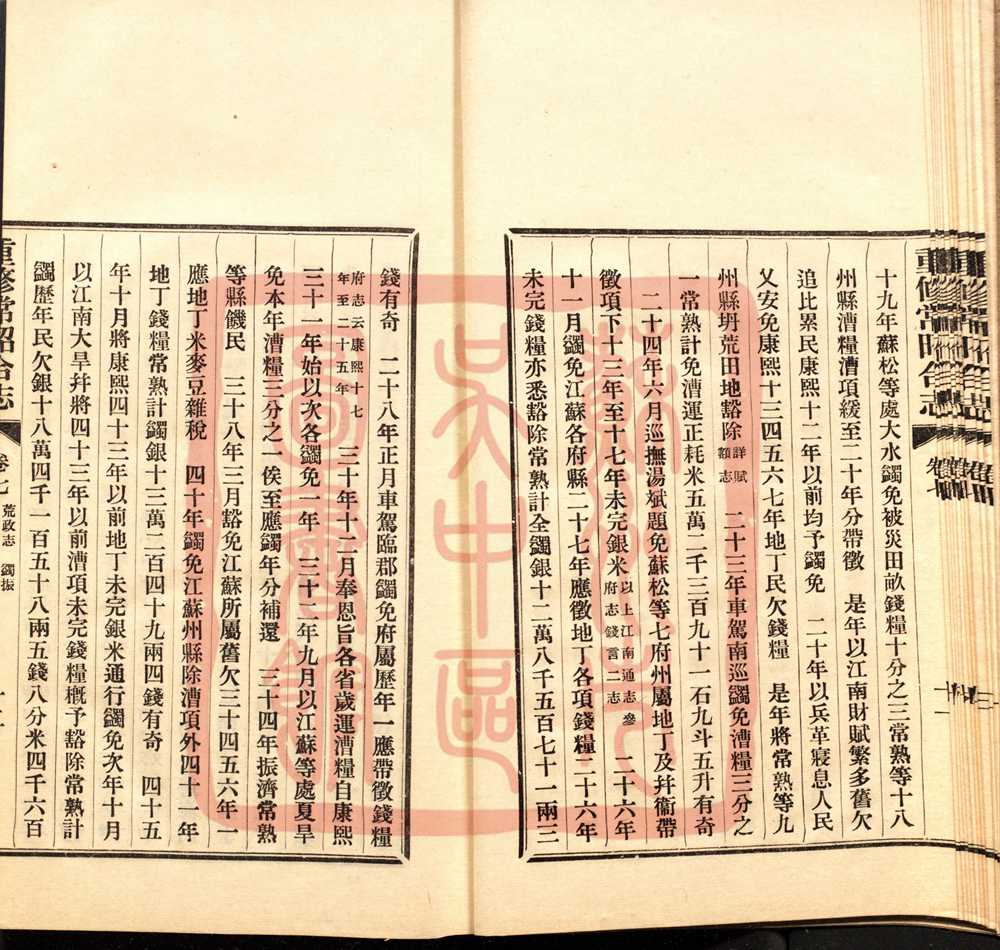 十九年蘇松等處大水蠲免被災田畝錢糧十分之三常熟等十八
州縣漕糧漕項緩至二十年分帶徵　是年以江南財賦繁多舊欠
追比累民康熙十二年以前均予蠲免　二十年以兵革寢息人民
乂安免康熙十三四五六七年地丁民欠錢糧　是年將常熟等九
州縣坍荒田地豁除詳賦額志　二十三年車駕南巡蠲免漕糧三分之
一常熟計免漕運正耗米五萬二千三百九十一石九斗五升有奇
二十四年六月巡撫湯斌題免蘇松等七府州屬地丁及幷衞帶
徵項下十三年至十七年未完銀米以上江南通志參府志錢言二志　二十六年
十一月蠲免江蘇各府縣二十七年應徵地丁各項錢糧二十六年
未完錢糧亦悉豁除常熟計全蠲銀十二萬八千五百七十一兩三
錢有奇　二十八年正月車駕臨郡蠲免府屬歷年一應帶徵錢糧
府志云康熙十七年至二十五年　三十年十二月奉恩旨各省歲運漕糧自康熙
三十一年始以次各蠲免一年　三十二年九月以江蘇等處夏旱
免本年漕糧三分之一俟至應蠲年分補還　三十四年振濟常熟
等縣饑民　三十八年三月豁免江蘇所屬舊欠三十四五六年一
應地丁米麥豆雜稅　四十年蠲免江蘇州縣除漕項外四十一年
地丁錢糧常熟計蠲銀十三萬二百四十九兩四錢有奇　四十五
年十月將康熙四十三年以前地丁未完銀米通行蠲免次年十月
以江南大旱幷將四十三年以前漕項未完錢糧概予豁除常熟計
蠲歷年民欠銀十八萬四千一百五十八兩五錢八分米四千六百
重修常昭合志　卷七　荒政志　蠲振